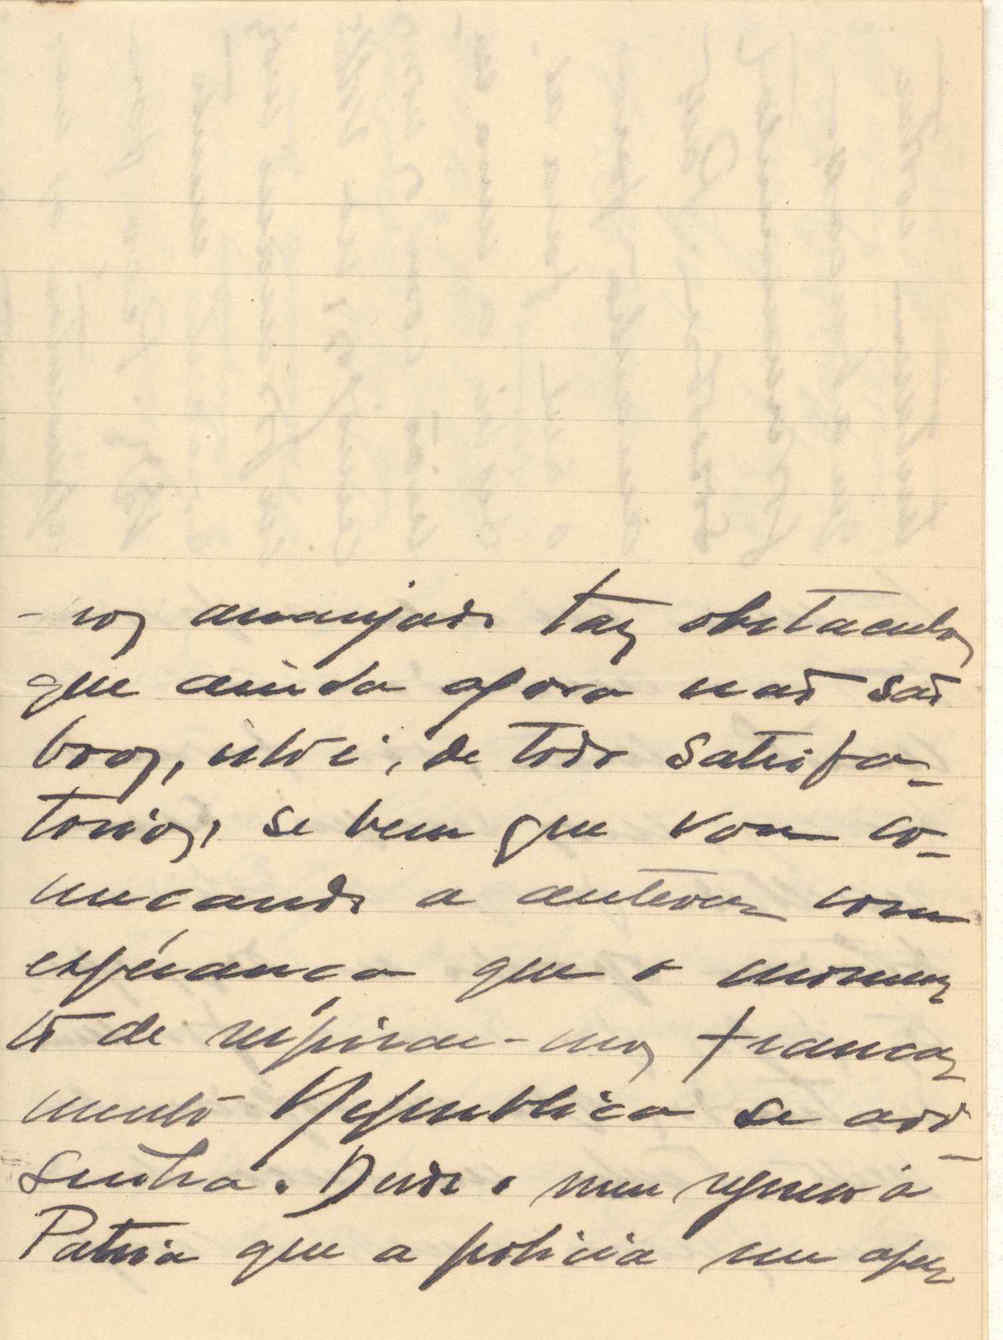 -ios arranjado taes obstaculos
que ainda agora não são
boas, isto é, de todo satisfa-
torios, se bem que vou co-
meçando a antever com
esperança que o momen-
to de respirar-mos franca-
mente Republica se avi-
sinha. Desde o meu regresso á
Patria que a policia me